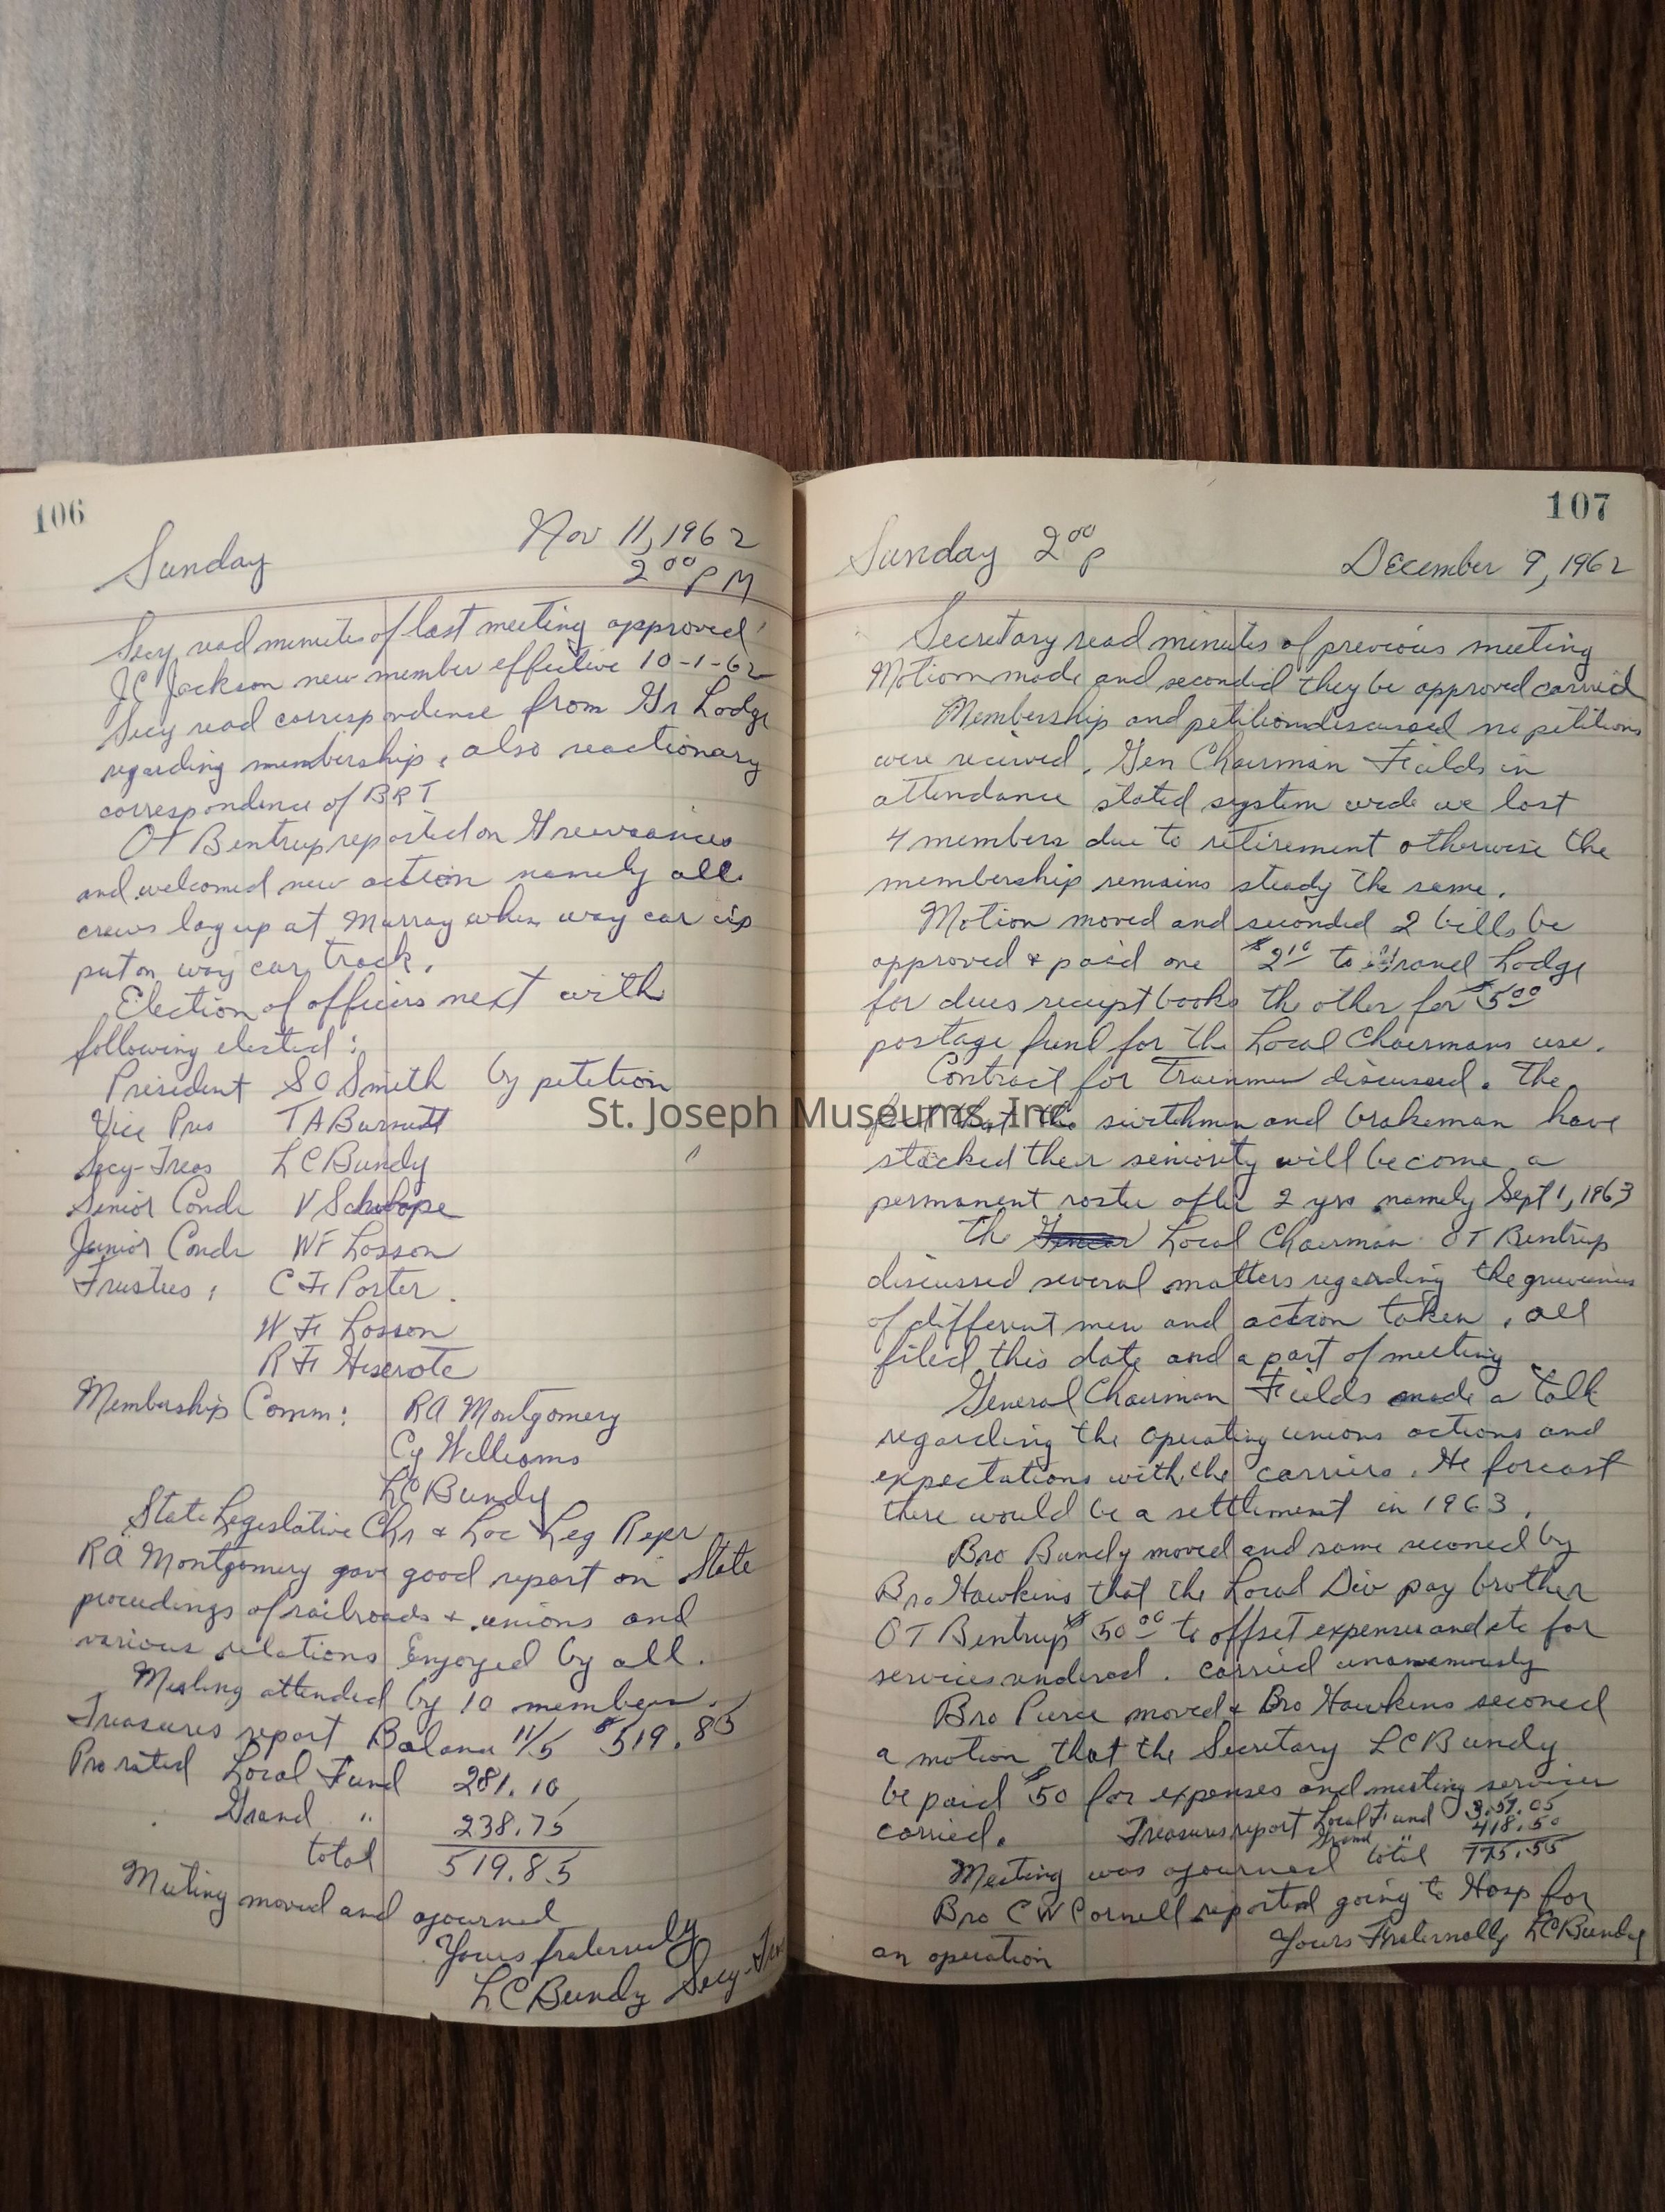 106
Nov 11, 1962
Sunday
2 00 PM
Secy read minutes of last meeting approved
JC Jackson new member effective 10-1-62
Secy read correspondence from Gr Lodge
regarding membership, also reactionary
correspondence of BRT
OT Bentrup reported on Greivances
and welcomed new action namely all
crews lay up at Murray when way car is
put on way car track.
Election of officers next with
following elected:
President S O Smith by petition
Vice Pres T A Burnett
Secy-Treas L C Bundy
Senior Condr V Schoope
Junior Condr WF Losson
Trustees, C F Porter.
W F Losson
R F Hiserote
Membership Comm: RA Montgomery
Cy Williams
LC Bundy
State Legislative Chr & Loc Leg Repr
RA Montgomery gave good report on State
procedings of railroads & unions and
various relations Enjoyed by all.
Meeting attended by 10 members.
Treasures report Balance 11/5 $519.85
Prorated Local Fund 281.10
Grand " 238.75
total 519.85
Meeting moved and ajourned
Yours fraternally
LC Bundy Secy-Tres
107
Sunday 2 00 P
December 9, 1962
Secretary read minutes of previous meeting
Motion made and seconded they be approved carried
Membership and petitions discussed no petitions
were received. Gen Chairman Fields in
attendance stated system wide we lost
4 members due to retirement otherwise the
membership remains steady the same.
Motion moved and seconded 2 bills be
approved & paid one $2 10 to Grand Lodge
for dues receipt books the other for $5 00
postage fund for the Local Chairmans use.
Contract for Trainmen discussed. The
fact that the switchmen and brakeman have
stacked their seniority will become a
permanent roster after 2 yrs namely Sept 1, 1963
The Local Chairman OT Bentrup
discussed several matters regarding the grievances
of different men and action taken, all
filed this date and a part of meeting
General Chairman Fields made a talk
regarding the operating unions actions and
expectations with the carriers. He forcast
there would be a settlement in 1963.
Bro Bundy moved and same seconed by
Bro Hawkins that the Local Div pay brother
OT Bentrup $50 00 to offset expenses and etc for
services rendered. carried unanimously
Bro Pierce moved & Bro Hawkins seconed
a motion that the Secretary LC Bundy
be paid $50 for expenses and meeting services
carried. Treasures report Local Fund 357.05
Grand " 418.50
Meeting was ajourned total 775.55
Bro C W Cornell reported going to Hosp for
an operation Yours Fraternally LC Bundy
St. Joseph Museums, Inc.